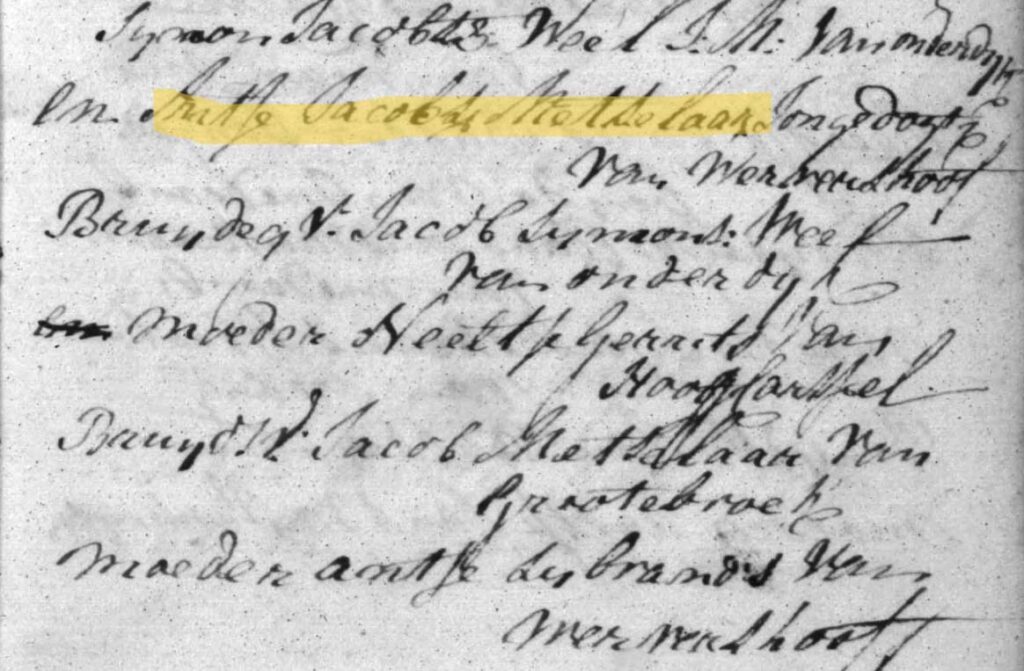 Symon Jacobsz Weel J: M: Van onderdyk
en Trutje Jacobs Metselaar Jongedogter
van Wervershoof
Bruydeg V: Jacob Symons: Weel
van onderdyk
moeder Neeltje Gerrits Van
Hoog Carspel
Bruyd V: Jacob Metselaar Van
Grootebroek
moeder antje Sybrands Van
Wervershooff